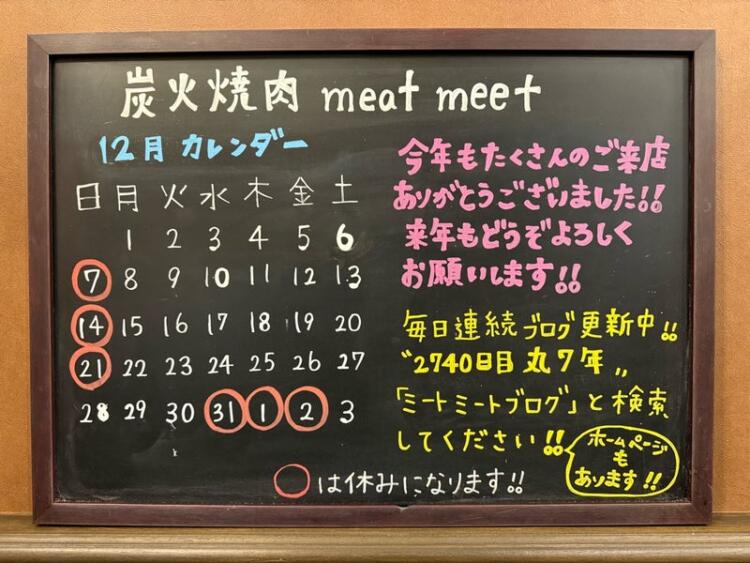 炭火焼肉 meat meet
12月 カレンダー
日 月 火 水 木 金 土
1 2 3 4 5 6
7 8 9 10 11 12 13
14 15 16 17 18 19 20
21 22 23 24 25 26 27
28 29 30 31 1 2 3
○は休みになります!!
今年もたくさんのご来店
ありがとうございました!!
来年もどうぞよろしく
お願いします!!
毎日連続ブログ更新中!!
〝2740日目 丸7年〟
「ミートミートブログ」と検索
してください!!
ホームページ
も
あります!!